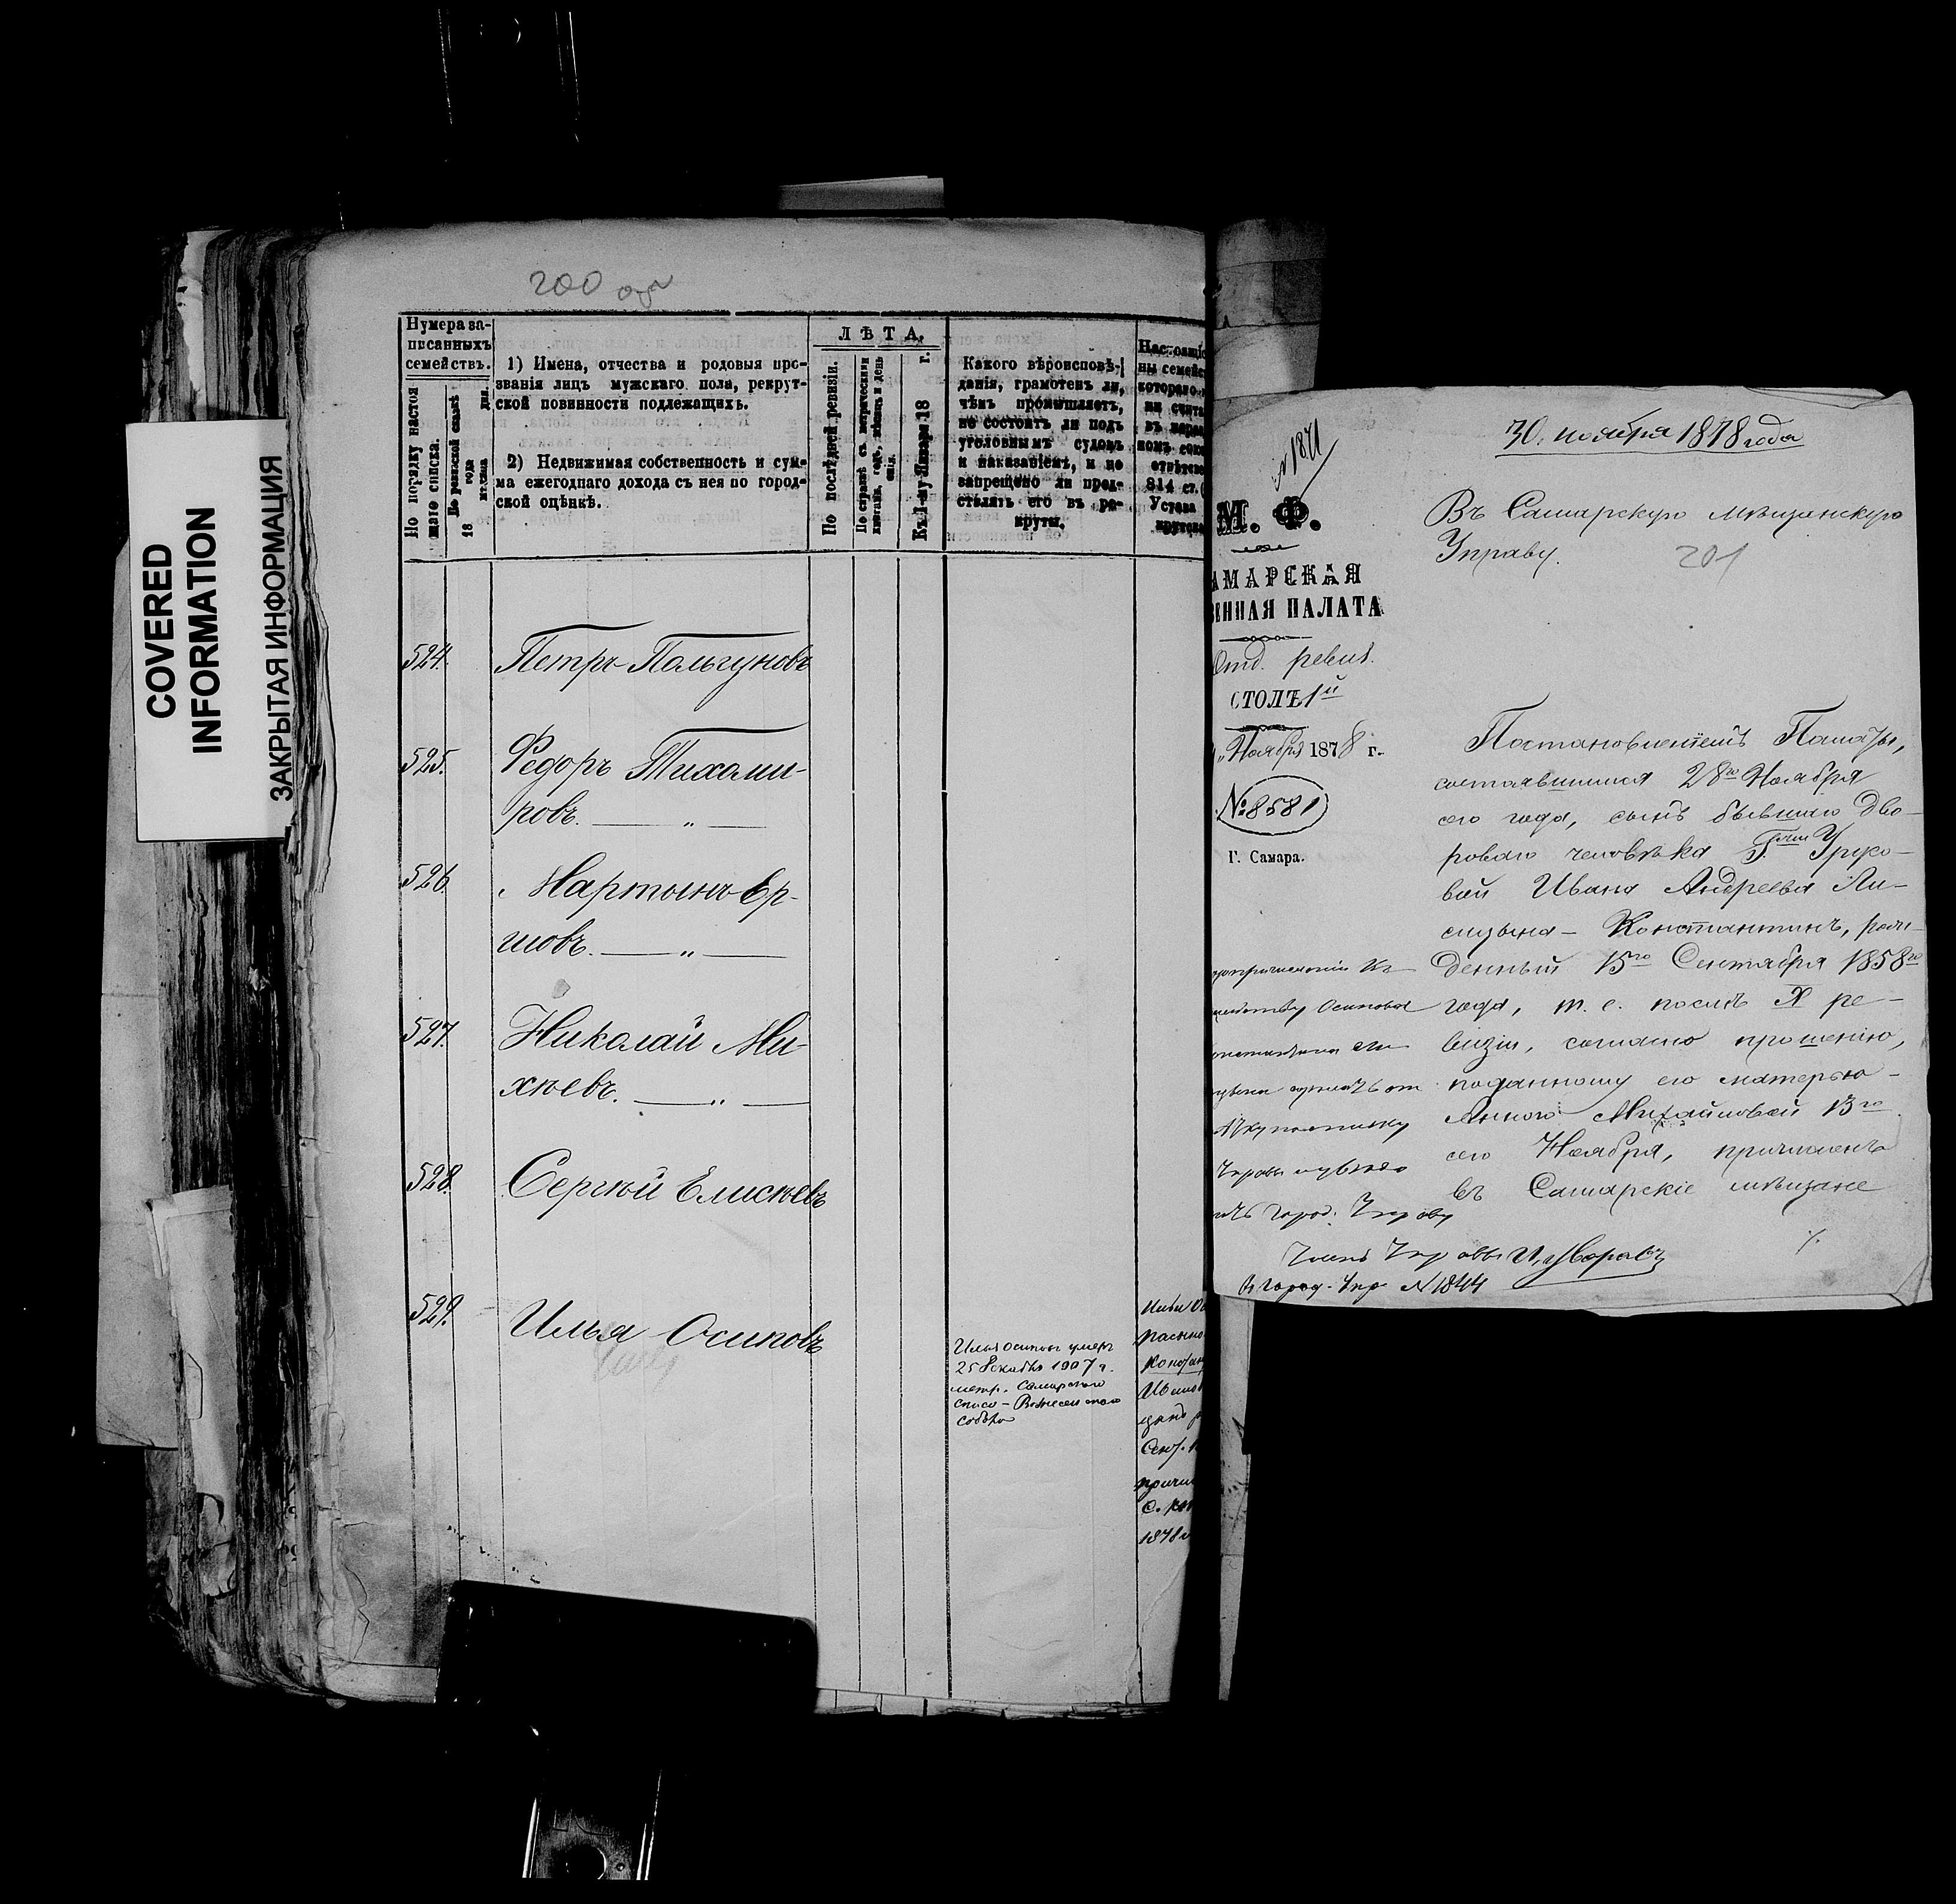 COVERED
INFORMATION
ЗАКРЫТАЯ ИНФОРМАЦИЯ
200 об
Нумера за-
писанныхъ
семействъ.
По порядку настоя
щаго списка.
По ревизской сказкѣ
18 года
мѣсяца дня.
1) Имена, отчества и родовыя про-
званія лицъ мужскаго пола, рекрут-
ской повинности подлежащихъ.
2) Недвижимая собственность и сум-
ма ежегоднаго дохода съ нея по город-
ской оцѣнкѣ.
ЛѢТА.
По послѣдней ревизіи.
По справкѣ съ метрическими
книгами, годъ, мѣсяцъ и день
Къ 1-му Января 18 г.
Какого вѣроисповѣ-
данія, грамотенъ ли,
чѣмъ промышляетъ,
не состоитъ ли подъ
уголовнымъ судомъ
и наказаніемъ, и не
запрещено ли пред-
ставлять его въ ре-
круты.
Настоящіе
ны семейс
котораго
ли счита
въ
номъ
отвѣтств
814 ст. (
Устава
крутска
524. Петръ Польгуновъ
525. Федоръ Тихоми-
ровъ. — „ —
526. Мартынъ Ер-
шовъ. — „ —
527. Николай Ми-
хѣевъ. — „ —
528. Сергѣй Елисѣевъ
529. Илья Осиповъ
Илья Осиповъ умеръ
25 Декабря 1907 г.
метр. Самарскаго
Спасо-Вознесенскаго
собора
Ильи О
пасыно
Конст
Ивано
Сент.
причи
1878 г
№ 1871
М. Ф.
АМАРСКАЯ
ЕННАЯ ПАЛАТА
Отд. ревиз.
СТОЛЪ 1й
„ Ноября 1878 г.
№ 8581
Г. Самара.
30. ноября 1878 года
Въ Самарскую мѣщанскую
Управу.
201
Постановленіемъ Палаты,
состоявшимся 28го Ноября
сего года, сынъ бывшаго дво-
роваго человѣка Г.жи Урусо-
вой Ивана Андреева Ли-
сицына - Константинъ, рож-
денный 15го Сентября 1858го
года, т. е. послѣ X ре-
визіи, согласно прошенію,
поданному его матерью -
Анною Михайловой 13го
сего Ноября, причисленъ
въ Самарскіе мѣщане
семейству Осипова
Управы
городъ. Управу
Членъ Управы
Въ город. Упр № 1844